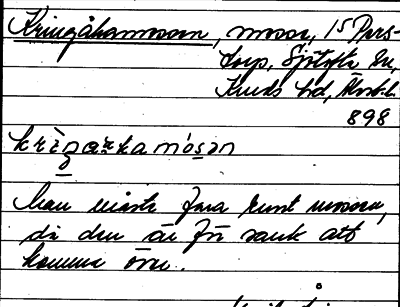 Kringåkamossen, mosse, 15 Pors-
torp, Sjötofta sn,
Kinds hd, Älvsb.l.
898
krìŋåkamósən
Man måste fara runt mossen,
då den är för sank att
komma över.